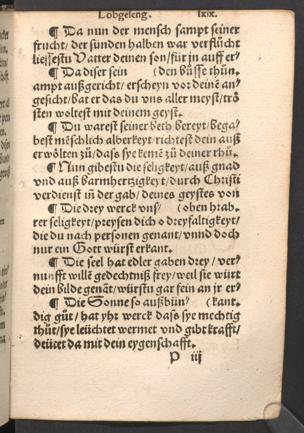 Lobgeseng. lxix.
¶ Da nun der mensch sampt seiner
frucht/ der sünden halben war verflůcht
liessestu Vatter deinen son/ für jn auff er/
¶ Da diser sein (den bůsse thůn.
ampt außgericht/ erscheyn vor deinē an/
gesicht/ bat er das du vns aller meyst/ trö
sten woltest mit deinem geyst.
¶ Du warest seiner beth bereyt/ bega/
best mēschlich alberkeyt/ richtest dein auß
erwölten zů/ daß sye kemē zů deiner rhů.
¶ Nun gibestu die seligkeyt/ auß gnad
vnd auß barmhertzigkeyt/ durch Christi
verdienst in der gab/ deines geystes von
¶ Die drey werck vnser (oben hrab.
rer seligkeyt/ preysen dich o dreyfaltigkeyt/
die du nach personen genant/ vnnd doch
nur ein Gott würst erkant.
¶ Die seel hat edler gaben drey/ ver/
nunfft willē gedechtniß frey/ weil sie würt
dein bilde genāt/ würstu gar fein an jr er/
¶ Die Sonne so außbün/ (kant.
dig gůt/ hat yhr werck daß sye mechtig
thůt/ sye leüchtet wermet vnd gibt krafft/
deütet da mit dein eygenschafft.
P iij